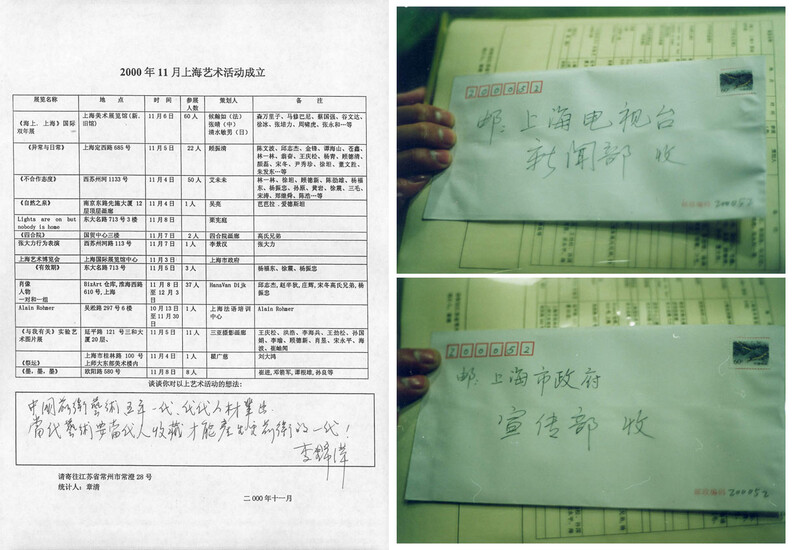 2000 年 11 月上海艺术活动成立
展览名称 地 点 时 间 参展人数 策划人 备 注
《海上，上海》国际双年展 上海美术展览馆（新、旧馆） 11月6日 60人 侯瀚如（法） 张晴（中） 清水敏男（日） 森万里子、马修巴尼、蔡国强、谷文达、徐冰、张培力、周啸虎、张永和…等
《异常与日常》 上海定西路 685 号 11月5日 22人 顾振清 陈文波、邱志杰、金锋、谭海山、苍鑫、林一林、翁奋、王庆松、杨青、顾德清、颜磊、宋冬、尹秀珍、徐坦、董文胜、朱发东…等
《不合作态度》 西苏州河 1133 号 11月4日 50人 艾未未 林一林、徐坦、顾德新、陈劭雄、杨福东、杨振忠、孙原、黄岩、徐震、三毛、宋涛、郑继舜、陈浩…等
《自然之泉》 南京东路先施大厦 12 层顶层画廊 11月4日 1人 吴亮 芭芭拉．爱德斯坦
Lights are on but nobody is home 东大名路 713 号 3 楼 11月8日 栗宪庭
《四合院》 国贸中心三楼 11月7日 2人 四合院画廊 高氏兄弟
张大力行为表演 西苏州河路 113 号 11月7日 1人 李景汉 张大力
上海艺术博览会 上海国际展览馆中心 11月3日 上海市政府
《有效期》 东大名路 713 号 11月5日 3人 杨福东、徐震、杨振忠
肖像 人物 一对和一组 BizArt 仓库，淮海西路 610 号，上海 11月8日 至 12月3日 37人 HansVan Dijk 邱志杰、赵半狄、庄辉、宋冬高氏兄弟、杨振忠
Alain Rohmer 吴淞路 297 号 6 楼 10月13日 至 11月30日 1人 上海法语培训中心 Alain Rohmer
《与我有关》实验艺术图片展 延平路 121 号三和大厦 20 层． 11月5日 11人 三亚摄影画廊 王庆松、洪浩、李海兵、王劲松、孙国娟、李瑜、顾德新、肖昱、宋永平、海波、崔岫闻
《祭坛》 上海市桂林路 100 号 上师大东部美术楼内 11月4日 1人 翟广慈 刘大鸿
《墨，墨，墨》 欧阳路 580 号 11月8日 8人 崔进、邓箭军、谭根雄、孙良等
谈谈你对以上艺术活动的想法：
中国前衛藝術五年一代、代代人材輩出
當代藝術要當代人收藏才能產出前衛的一代！
请寄往江苏省常州市常澄 28 号
统计人：章清
二000 年十一月
200052
邮：上海电视台
新闻部 收
200052
邮：上海市政府
宣传部 收
200052